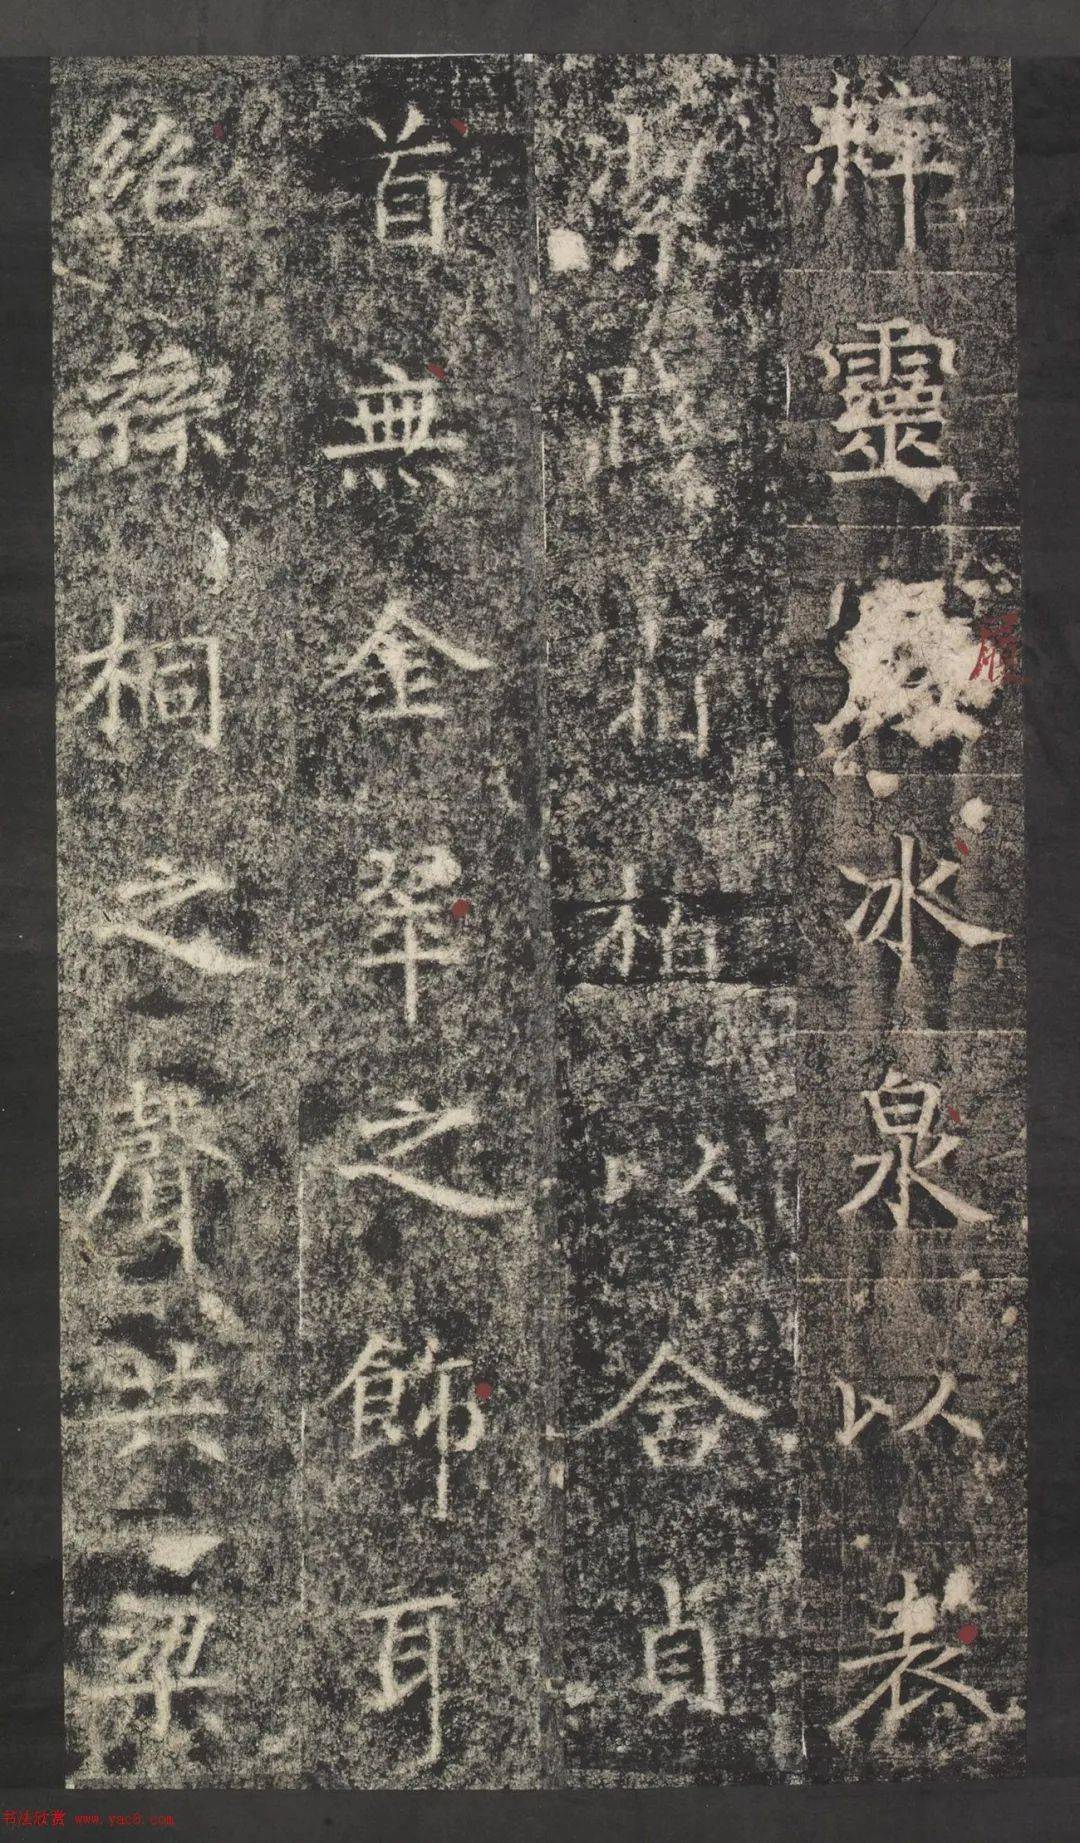 粹靈
冰泉以表
潔
柏以含貞
首無金翠之飾耳
絕絲桐之聲共梁
书法欣赏 www.yac8.com